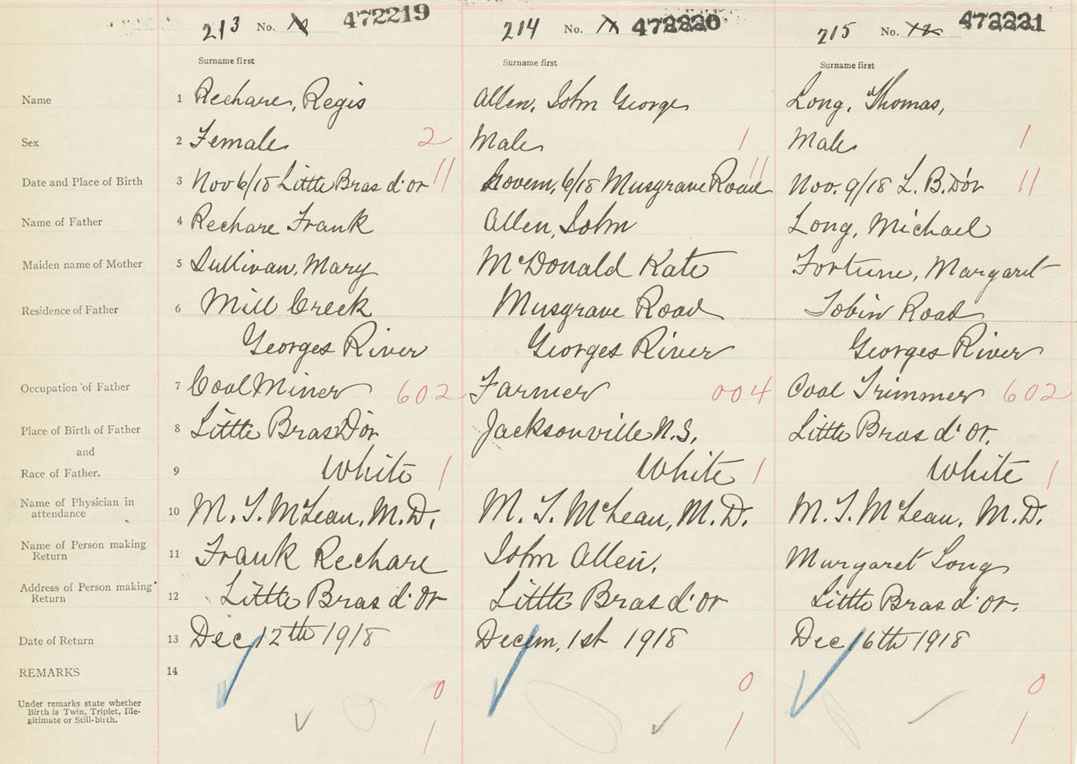 213 No. 472219
214 No. 472220
215 No. 472221
Surname first
Surname first
Surname first
Name 1 Rechare, Regis
Allen, John George
Long, Thomas,
Sex 2 Female 2
Male 1
Male 1
Date and Place of Birth 3 Nov 6/18 Little Bras d'or 11
Novem, 6/18 Musgrave Road 11
Nov. 9/18 L. B. D'or 11
Name of Father 4 Rechare Frank
Allen, John
Long, Michael
Maiden name of Mother 5 Sullivan, Mary
McDonald Kate
Fortune, Margaret
Residence of Father 6 Mill Creek
Musgrave Road
Tobin Road
Georges River
Georges River
Georges River
Occupation of Father 7 Coal Miner 602
Farmer 004
Coal Trimmer 602
Place of Birth of Father 8 Little Bras D'or
Jacksonville N.S.
Little Bras d'or.
and
Race of Father. 9 White 1
White 1
White 1
Name of Physician in
attendance 10 M. T. McLean, M.D.
M. T. McLean, M.D.
M. T. McLean, M.D.
Name of Person making
Return 11 Frank Rechare
John Allen.
Margaret Long
Address of Person making
Return 12 Little Bras d'or
Little Bras d'or
Little Bras d'or.
Date of Return 13 Dec 12th 1918
Decem, 1st 1918
Dec 16th 1918
REMARKS 14
0
0
0
Under remarks state whether
Birth is Twin, Triplet, Ille-
gitimate or Still-birth.
1
1
1